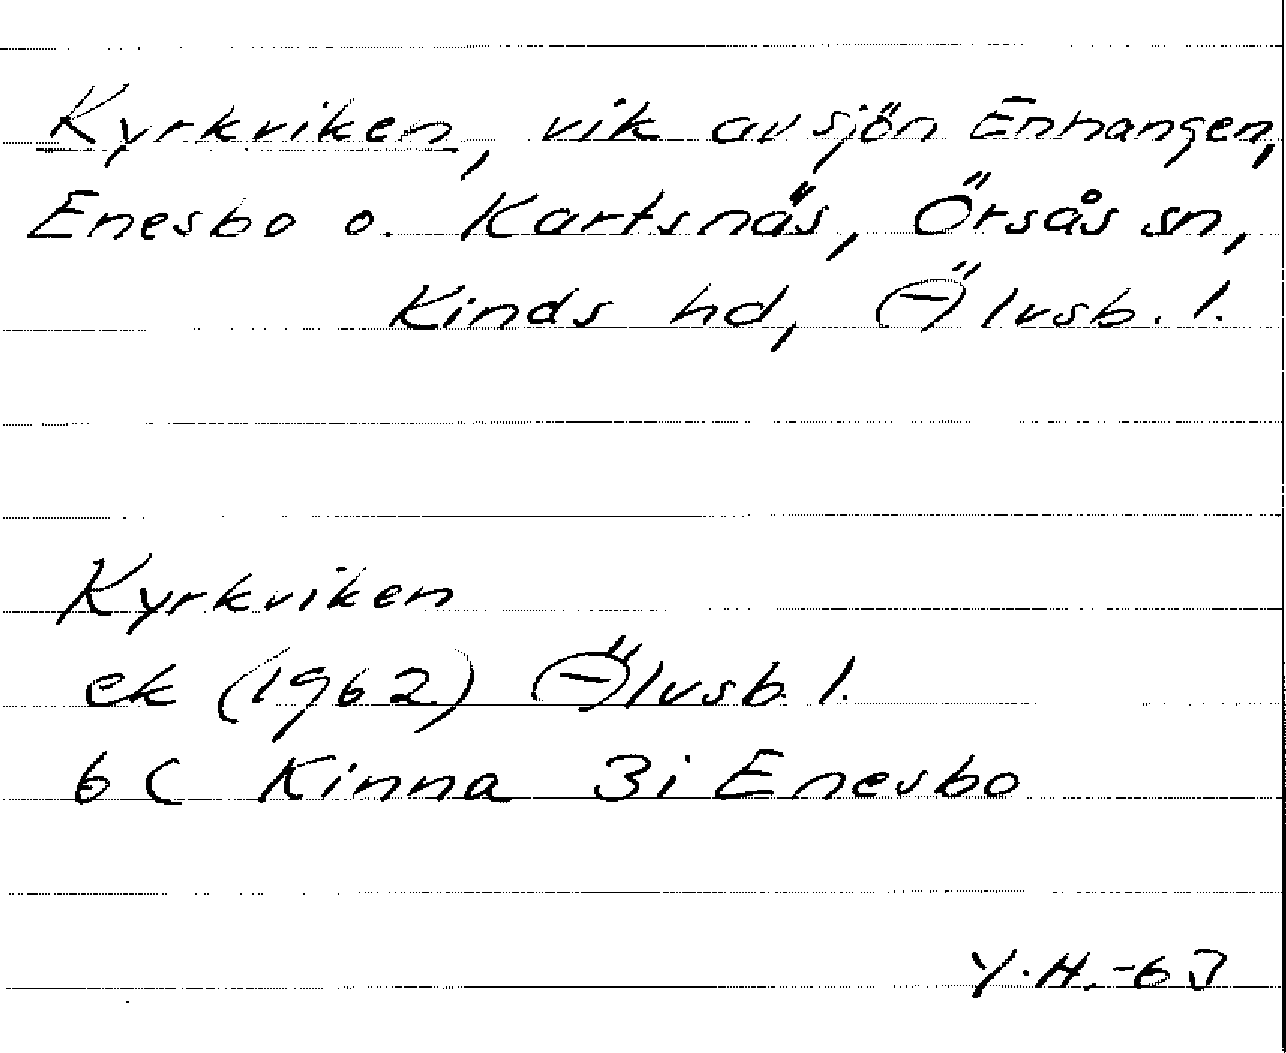 Kyrkviken, vik av sjön Enhangen,
Enesbo o. Kartsnäs, Örsås sn,
Kinds hd, Älvsb. l.
Kyrkviken
ek (1962) Älvsb. l.
6 C Kinna 3i Enesbo
Y.H.-63